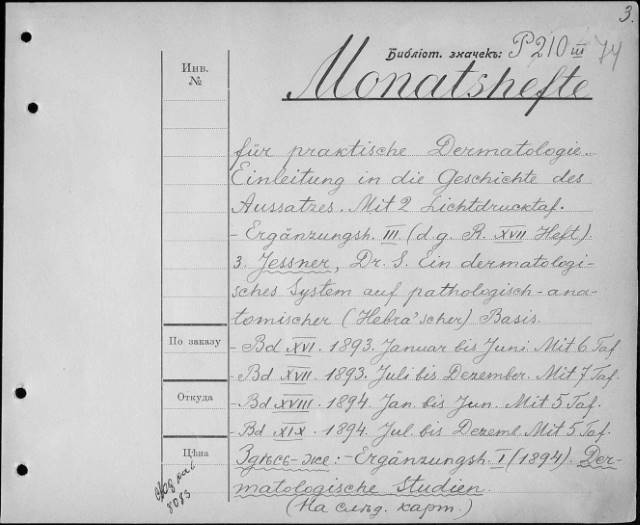 3.
Библіот. значекъ: P 210 III 74
Инв.
№
Monatshefte
für praktische Dermatologie.
Einleitung in die Geschichte des
Aussatzes. Mit 2 Lichtdrucktaf.
- Ergänzungsh. III. (d. g. R. XVII Heft).
3. Jessner, Dr. S. Ein dermatologi-
sches System auf pathologisch-ana-
tomischer (Hebra'scher) Basis.
По заказу
- Bd XVI. 1893. Januar bis Juni. Mit 6 Taf
- Bd XVII. 1893. Juli bis Dezember. Mit 7 Taf.
Откуда
- Bd XVIII. 1894. Jan. bis Jun. Mit 5 Taf.
- Bd XIX. 1894. Jul. bis Dezemb. Mit 5 Taf.
Цѣна
Здѣсь-же: - Ergänzungsh. I (1894). Der-
matologische Studien.
(На слѣд. карт.)
8083